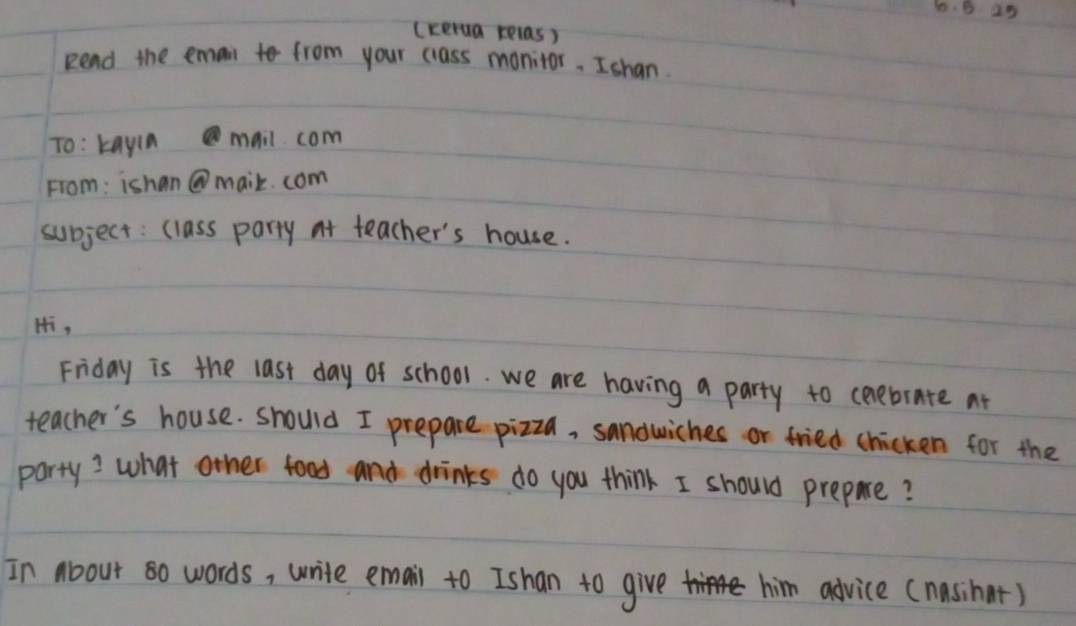 6.5 25
(Ketua kelas)
Read the email to from your class monitor, Ishan.
To: kayla @mail.com
From: ishan@mail.com
Subject: Class party at teacher's house.
Hi,
Friday is the last day of school. We are having a party to celebrate at
teacher's house. Should I prepare pizza, sandwiches or fried chicken for the
party? What other food and drinks do you think I should prepare?
In about 80 words, write email to Ishan to give hime him advice (nasihat)